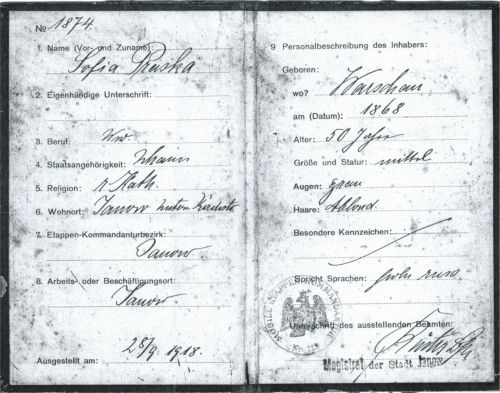 No 1874.
1. Name (Vor- und Zuname):
Sofia Pruska
2. Eigenhändige Unterschrift:
3. Beruf: Ww.
4. Staatsangehörigkeit:
5. Religion: r. Kath.
6. Wohnort: Janow
7. Etappen-Kommandanturbezirk:
Janow
8. Arbeits- oder Beschäftigungsort:
Janow
Ausgestellt am: 28/9. 1918.
9 Personalbeschreibung des Inhabers:
Geboren:
wo? Warschau
am (Datum): 1868
Alter: 50 Jahre
Größe und Statur: mittel
Augen: grau
Haare: blond
Besondere Kennzeichen:
Spricht Sprachen: poln. russ.
MOBILE ETAPPEN-KOMMANDANTUR
Unterschrift des ausstellenden Beamten:
Magistrat der Stadt Janow